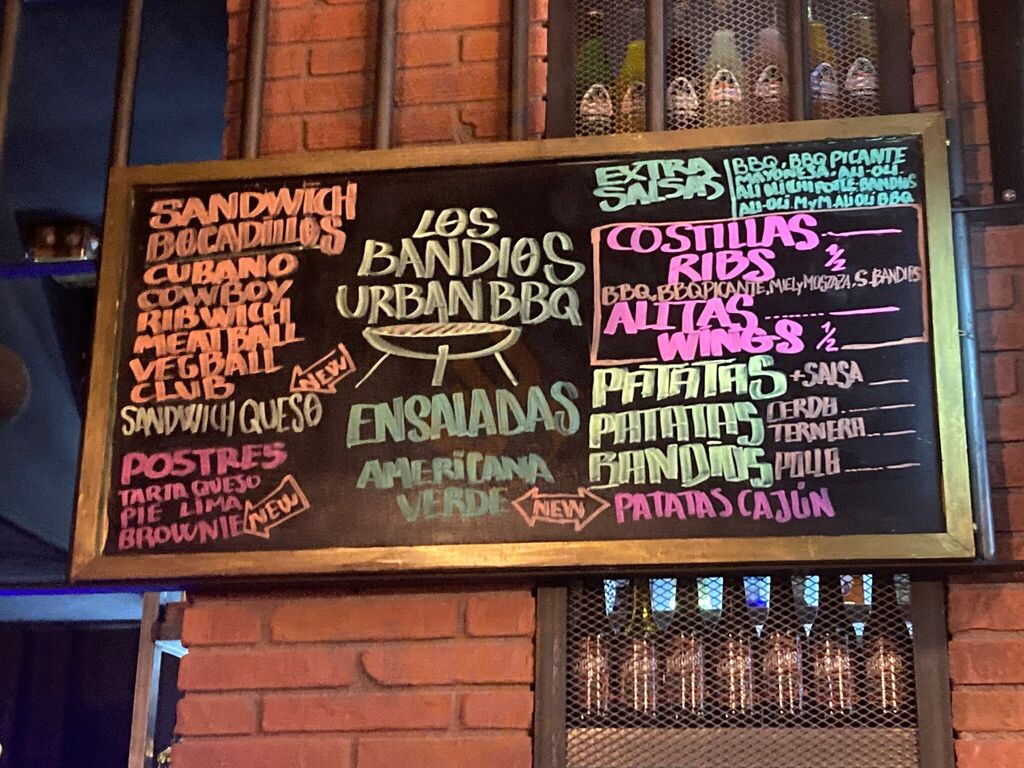 SANDWICH
BOCADILLOS
CUBANO
COWBOY
RIBWICH
MEATBALL
VEGBALL
CLUB
NEW
SANDWICH QUESO
POSTRES
TARTA QUESO
PIE LIMA
BROWNIE
NEW
LOS
BANDIOS
URBAN BBQ
ENSALADAS
AMERICANA
VERDE
NEW
EXTRA
SALSAS
BBQ, BBQ PICANTE
MAYONESA, ALI-OLI.
ALI OLI CHIPOTLE-BANDIOS
ALI-OLI. MYM. ALI OLI BBQ
COSTILLAS
RIBS 1/2
BBQ, BBQ PICANTE, MIEL Y MOSTAZA, S. BANDIOS
ALITAS
WINGS 1/2
PATATAS +SALSA
PATATAS
BANDIOS
CERDO
TERNERA
POLLO
PATATAS CAJÚN